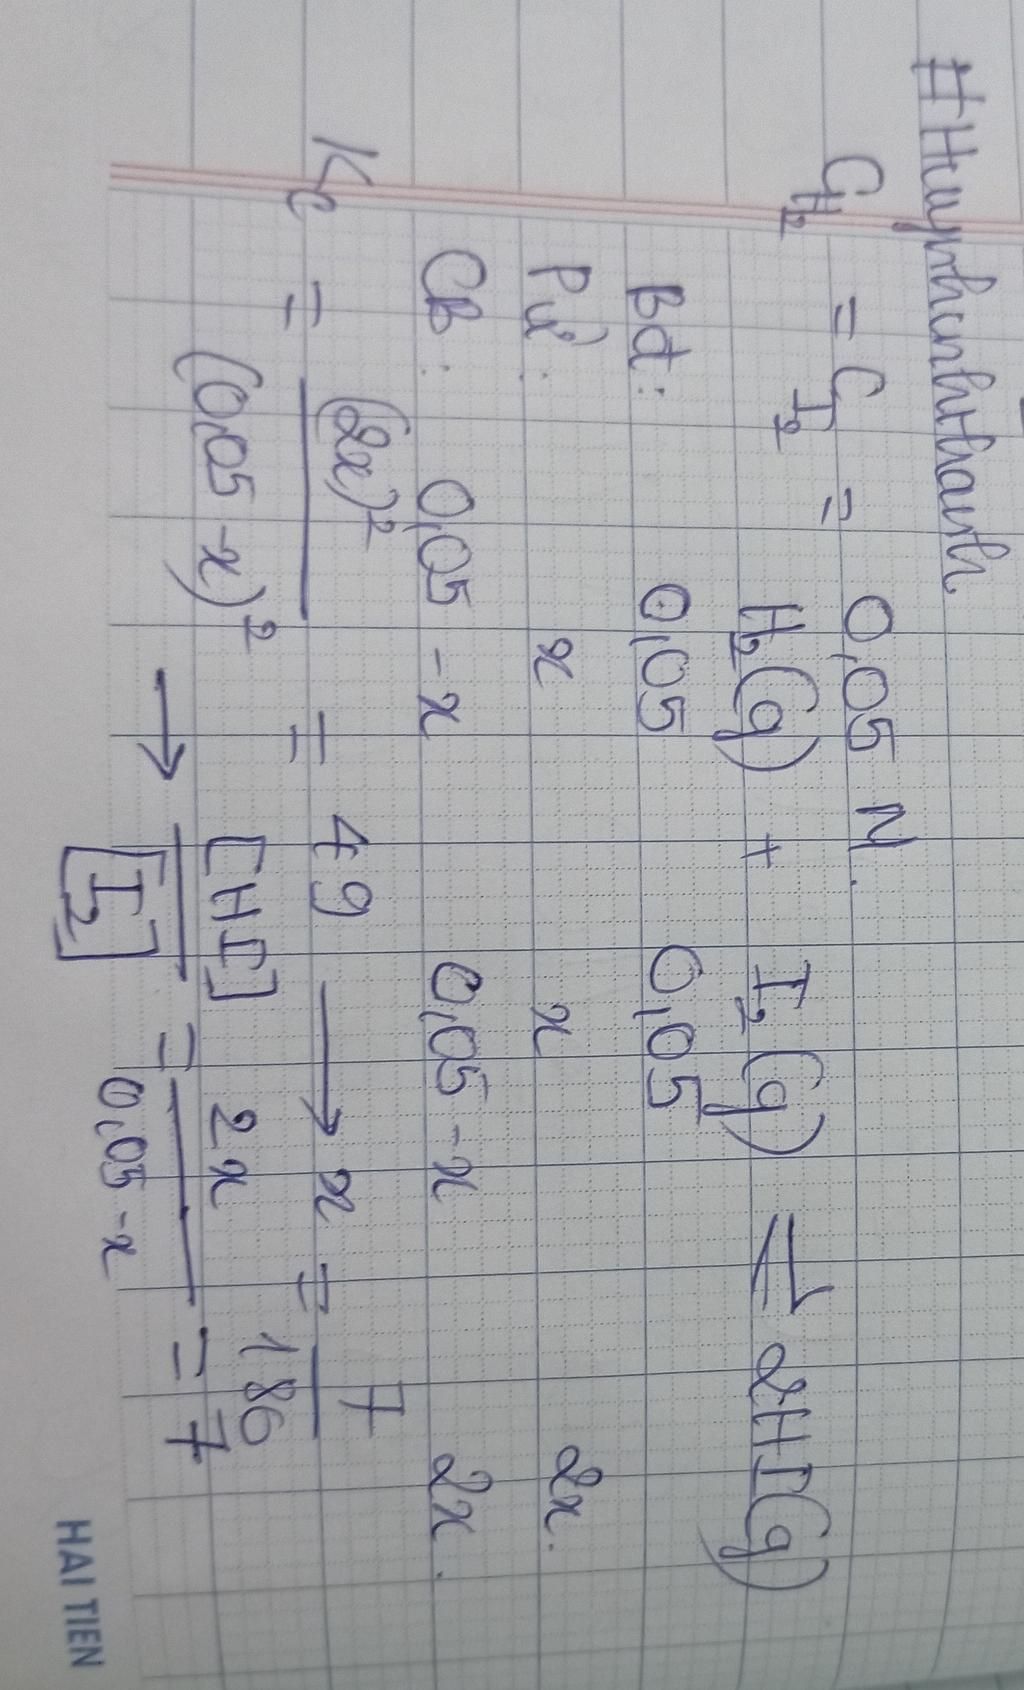 #Huynhanhthanh
C_H₂ = C_I₂ = 0,05 M.
H₂(g) + I₂(g) ⇌ 2HI(g)
Bđ: 0,05 0,05
Pư: x x 2x.
CB: 0,05 - x 0,05 - x 2x.
Kc = (2x)² / (0,05 - x)² = 49 → x = 7/186
→ [HI] / [I₂] = 2x / 0,05 - x = 7
HAI TIEN